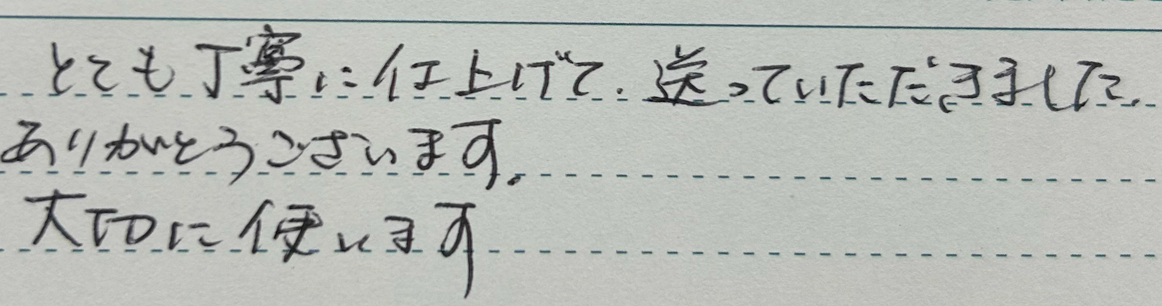 とても丁寧に仕上げて、送っていただきました。
ありがとうございます。
大切に使います